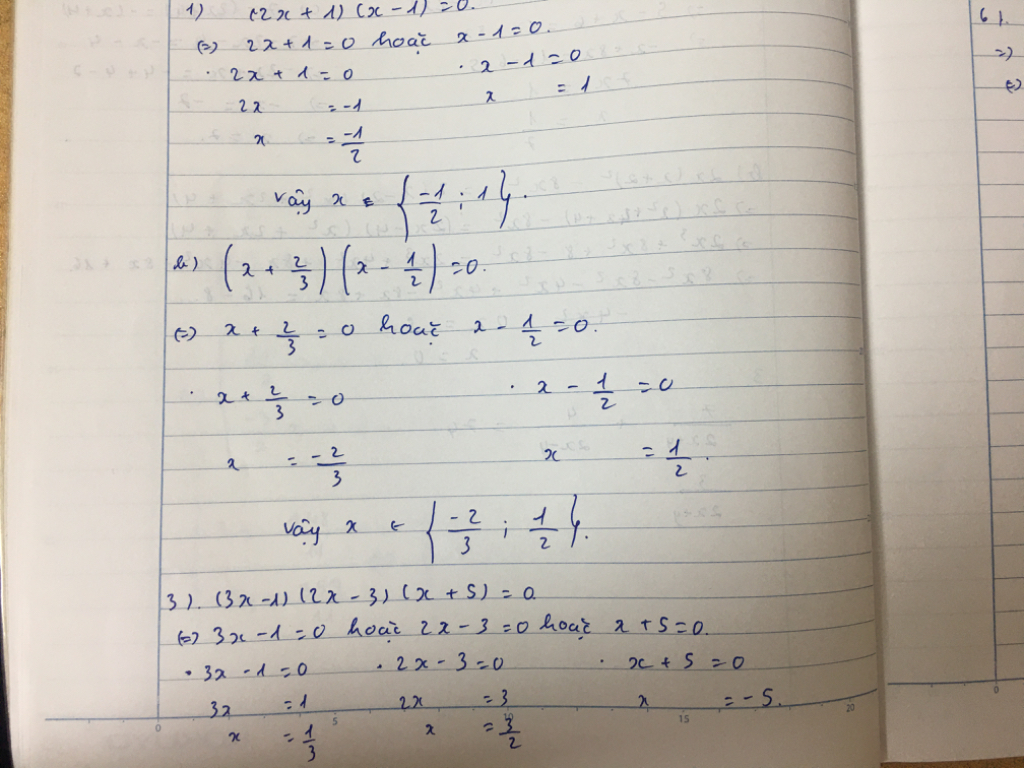 1) (2x + 1) (x - 1) = 0.
(=) 2x + 1 = 0 hoặc x - 1 = 0.
· 2x + 1 = 0 · x - 1 = 0
2x = -1 x = 1
x = -1/2
Vậy x ∈ {-1/2 ; 1}.
b) (x + 2/3) (x - 1/2) = 0.
(=) x + 2/3 = 0 hoặc x - 1/2 = 0.
· x + 2/3 = 0 · x - 1/2 = 0
x = -2/3 x = 1/2.
Vậy x ∈ {-2/3 ; 1/2}.
3). (3x - 1) (2x - 3) (x + 5) = 0.
(=) 3x - 1 = 0 hoặc 2x - 3 = 0 hoặc x + 5 = 0.
· 3x - 1 = 0 · 2x - 3 = 0 · x + 5 = 0
3x = 1 2x = 3 x = -5.
x = 1/3 x = 3/2
0 5 10 15 20
6).
=)
(=)
0